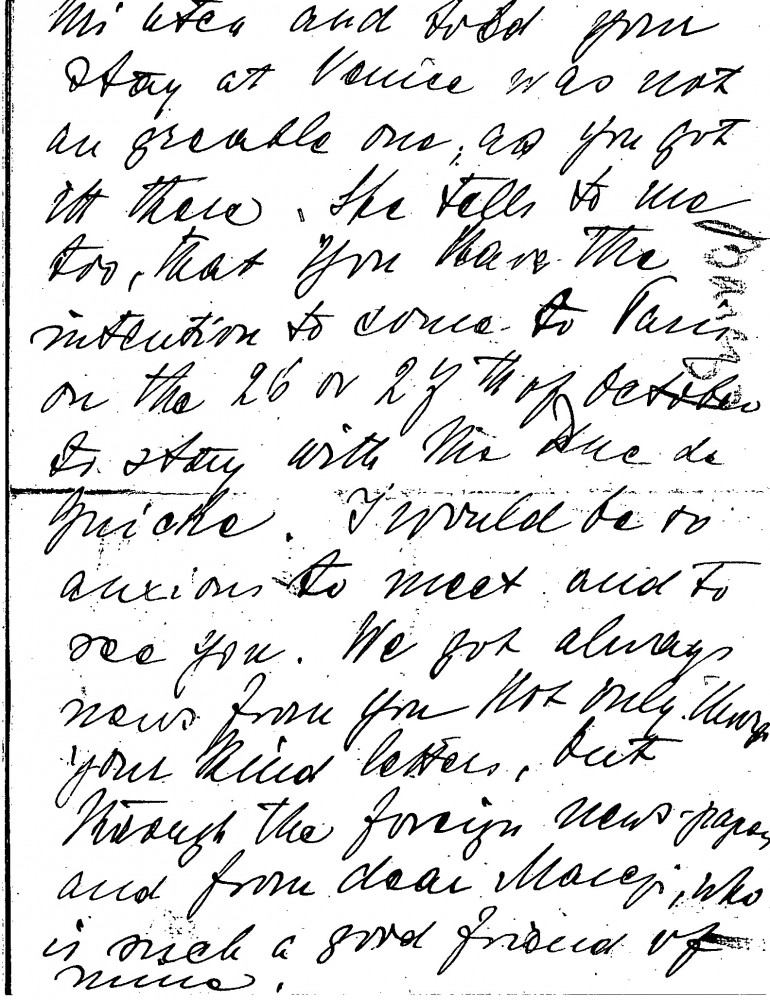 and told your
stay at Venice was not
an greable one, as you got
ill there. She tells to me
too, that you have the
intention to come to Paris
on the 26 or 27 th of October
to stay with the Duc de
Guiche. I would be so
anxious to meet and to
see you. We got always
news from you not only through
your kind letters, but
through the foreign news-papers
and from dear, who
is such a good friend of
mine.